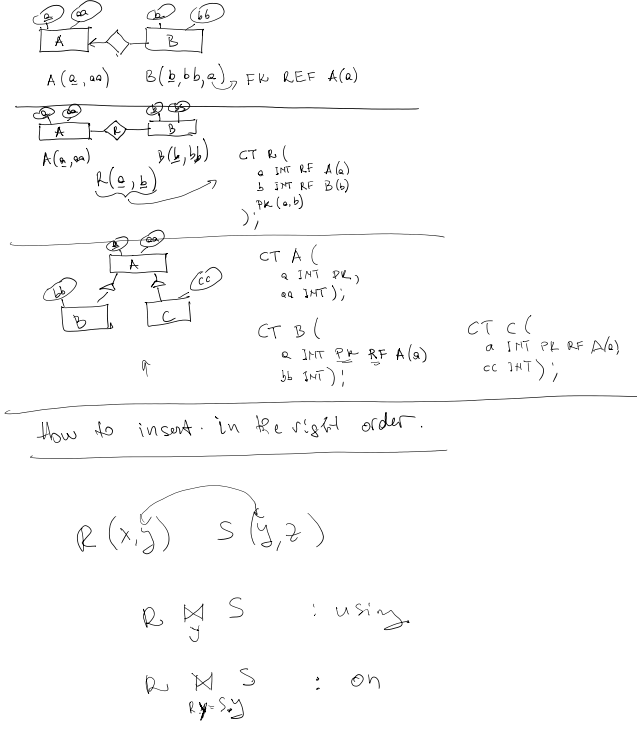 a aa a bb
A B
A(a,aa) B(b,bb,a) FK REF A(a)
a aa b bb
A R B
A(a,aa) B(b,bb)
R(a,b)
CT R (
a INT RF A(a)
b INT RF B(b)
PK (a,b)
);
a aa
A
bb cc
B C
CT A (
a INT PK,
aa INT);
CT B (
a INT PK RF A(a)
bb INT);
CT C (
a INT PK RF A(a)
cc INT);
How to insert. in the right order.
R (x,y) S (y,z)
R ⋈ S : using
y
R ⋈ S : on
R.y=S.y